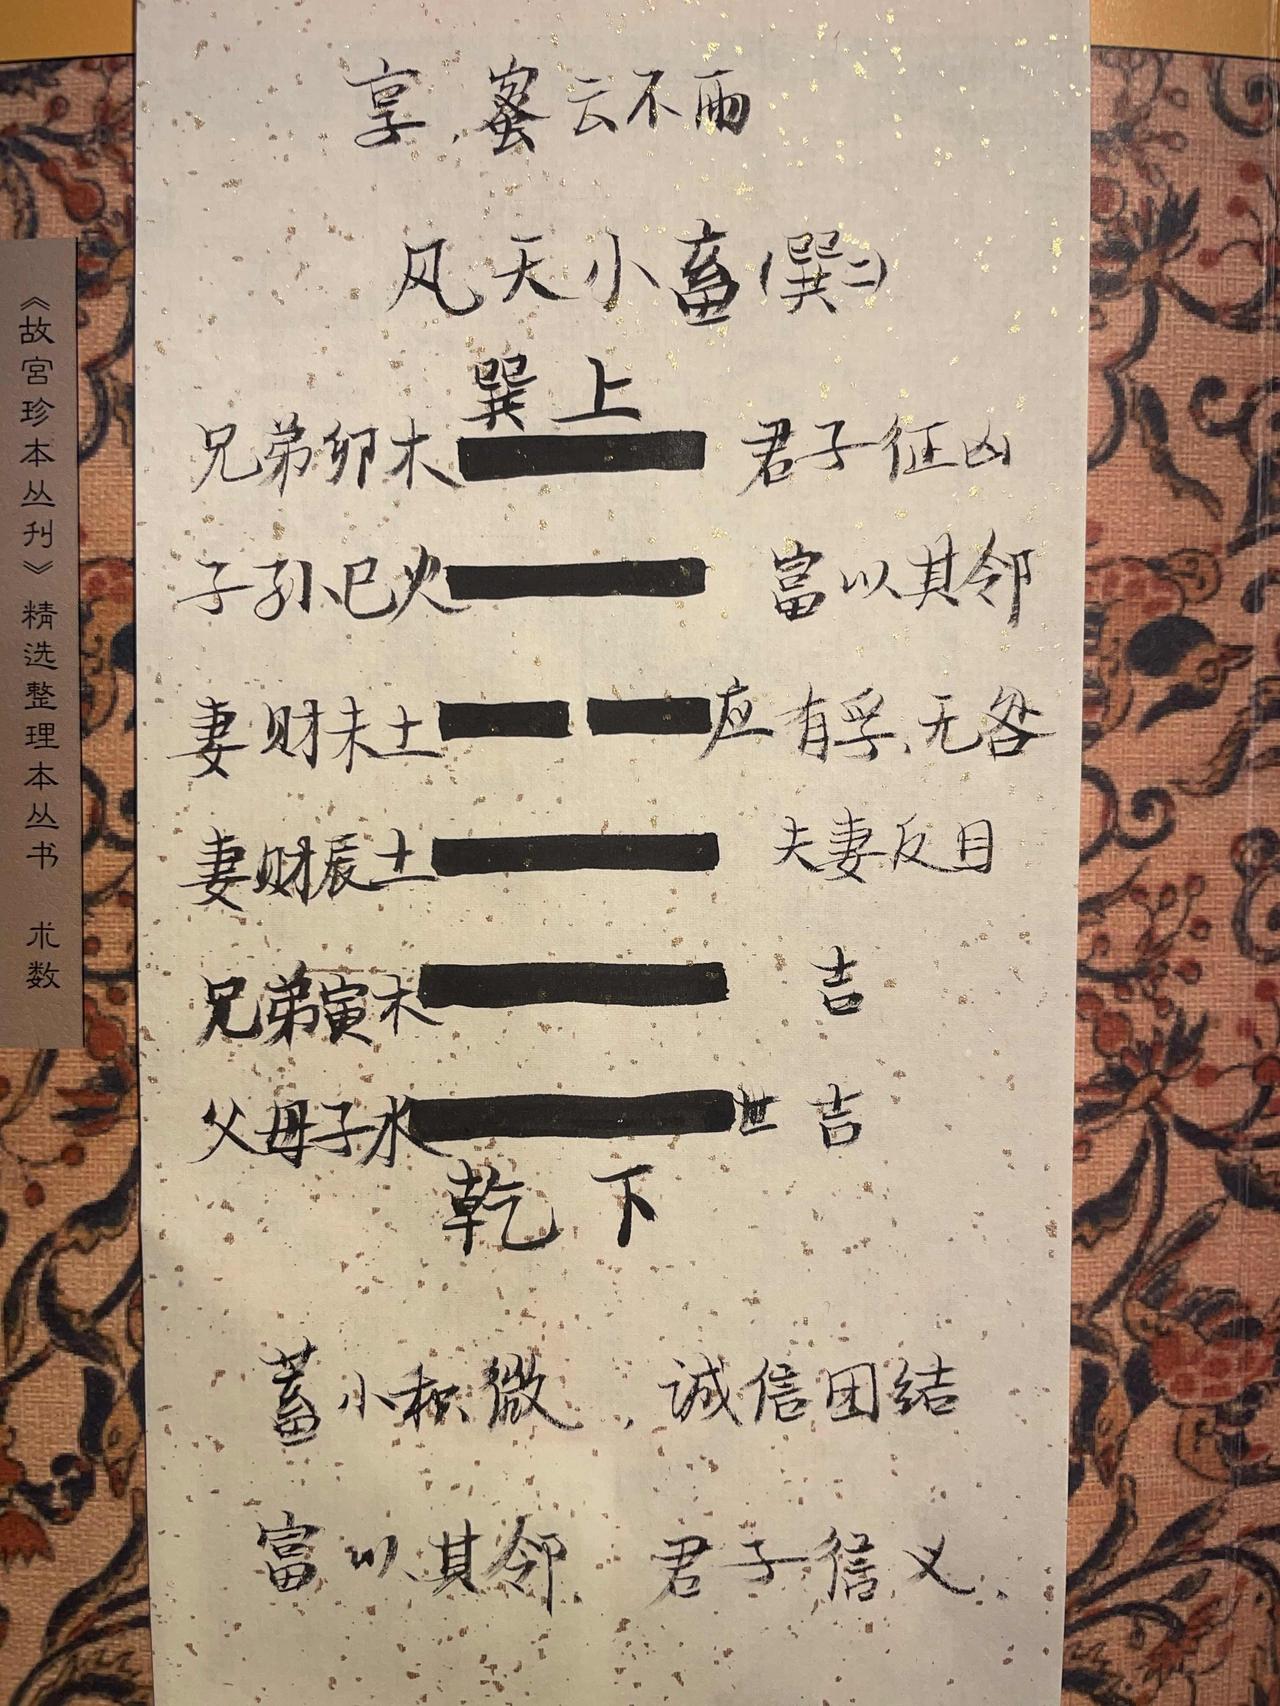 享，蜜云不雨
风天小畜（巽二）
巽上
兄弟卯木 君子征凶
子孙巳火 富以其邻
妻财未土 应 有孚、无咎
妻财辰土 夫妻反目
兄弟寅木 吉
父母子水 世 吉
乾下
蓄小积微，诚信团结
富以其邻、君子信义、
《故宫珍本丛刊》精选整理本丛书 术数